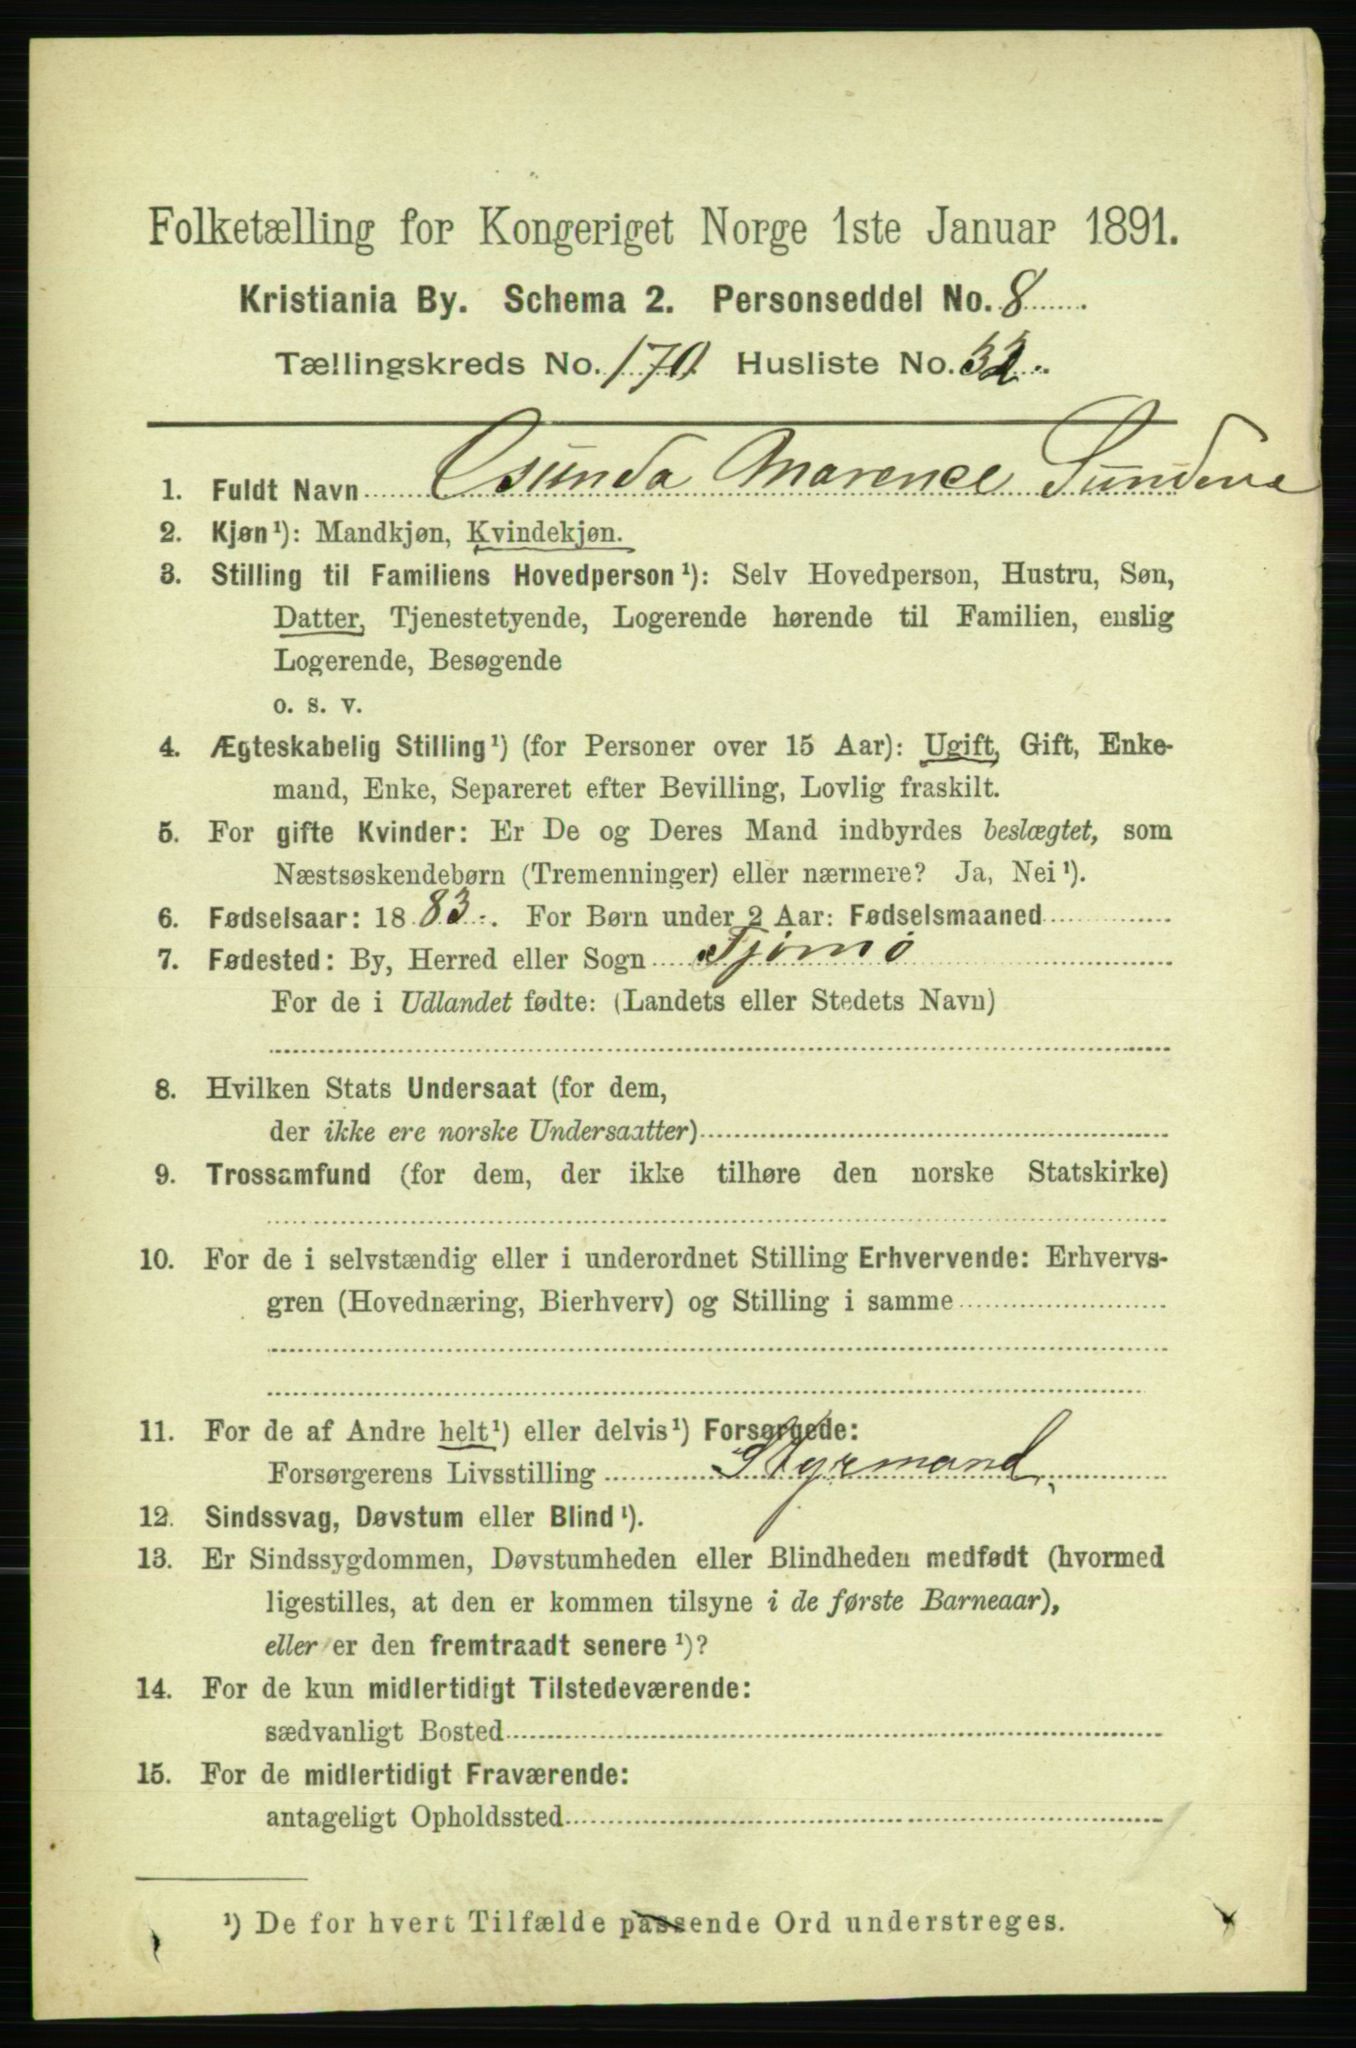 Folketælling for Kongeriget Norge 1ste Januar 1891.
Kristiania By. Schema 2. Personseddel No. 8
Tællingskreds No. 170. Husliste No. 32.
1. Fuldt Navn Osunda Marence
2. Kjøn¹): Mandkjøn, Kvindekjøn.
3. Stilling til Familiens Hovedperson¹): Selv Hovedperson, Hustru, Søn,
Datter, Tjenestetyende, Logerende hørende til Familien, enslig
Logerende, Besøgende
o. s. v.
4. Ægteskabelig Stilling¹) (for Personer over 15 Aar): Ugift, Gift, Enke-
mand, Enke, Separeret efter Bevilling, Lovlig fraskilt.
5. For gifte Kvinder: Er De og Deres Mand indbyrdes beslægtet, som
Næstsøskendebørn (Tremenninger) eller nærmere? Ja, Nei¹).
6. Fødselsaar: 1883. For Børn under 2 Aar: Fødselsmaaned
7. Fødested: By, Herred eller Sogn Tjømø
For de i Udlandet fødte: (Landets eller Stedets Navn)
8. Hvilken Stats Undersaat (for dem,
der ikke ere norske Undersaatter)
9. Trossamfund (for dem, der ikke tilhøre den norske Statskirke)
10. For de i selvstændig eller i underordnet Stilling Erhvervende: Erhvervs-
gren (Hovednæring, Bierhverv) og Stilling i samme
11. For de af Andre helt¹) eller delvis¹) Forsørgede:
Forsørgerens Livsstilling Styrmand.
12. Sindssvag, Døvstum eller Blind¹).
13. Er Sindssygdommen, Døvstumheden eller Blindheden medfødt (hvormed
ligestilles, at den er kommen tilsyne i de første Barneaar),
eller er den fremtraadt senere¹)?
14. For de kun midlertidigt Tilstedeværende:
sædvanligt Bosted
15. For de midlertidigt Fraværende:
antageligt Opholdssted
¹) De for hvert Tilfælde passende Ord understreges.